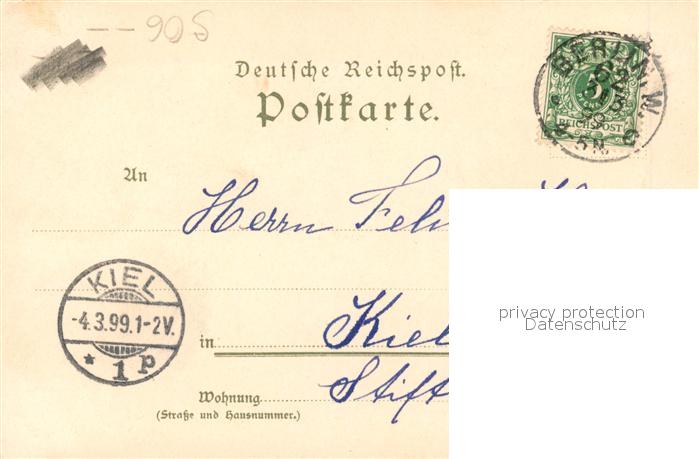 90S
Deutsche Reichspost.
Postkarte.
BERLIN, W.
5
REICHSPOST
An
Herrn
KIEL
-4.3.99.1-2V.
* 1p
in Kiel
Wohnung Stift
(Straße und Hausnummer.)
privacy protection
Datenschutz